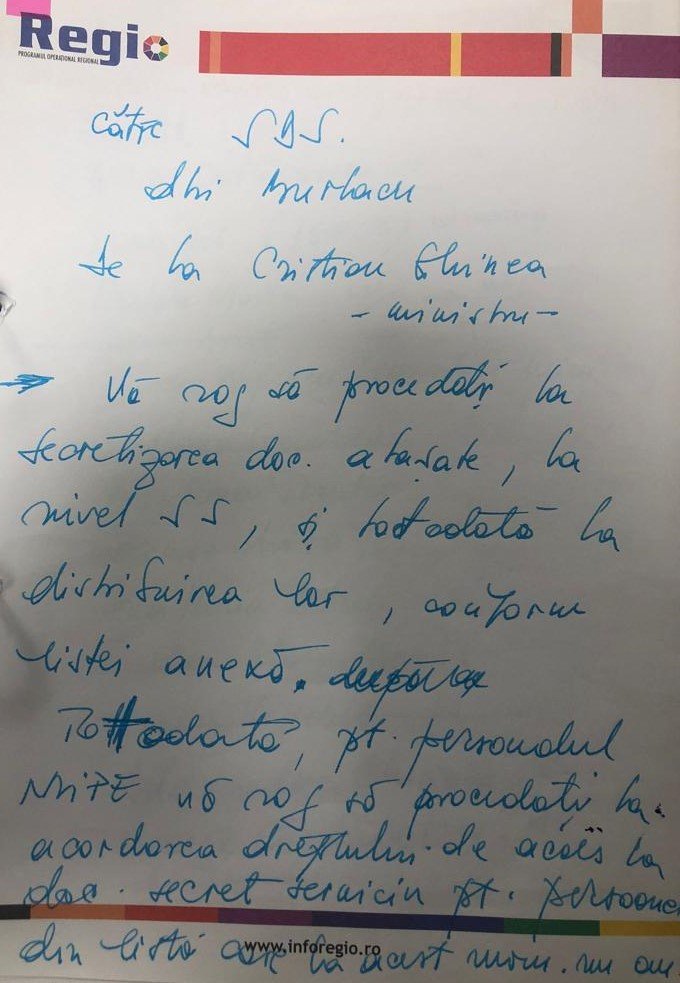 Regio
PROGRAMUL OPERAȚIONAL REGIONAL
Către SDS.
dlui Burlacu
De la Cristian Ghinea
- ministru -
Vă rog să procedați la
secretizarea doc. atașate, la
nivel SS, și totodată la
distribuirea lor, conform
listei anexă.
Totodată, pt. personalul
MIPE vă rog să procedați la
acordarea dreptului de acces la
doc. secret serviciu pt. persoane
din listă care la acest mom. nu au
www.inforegio.ro